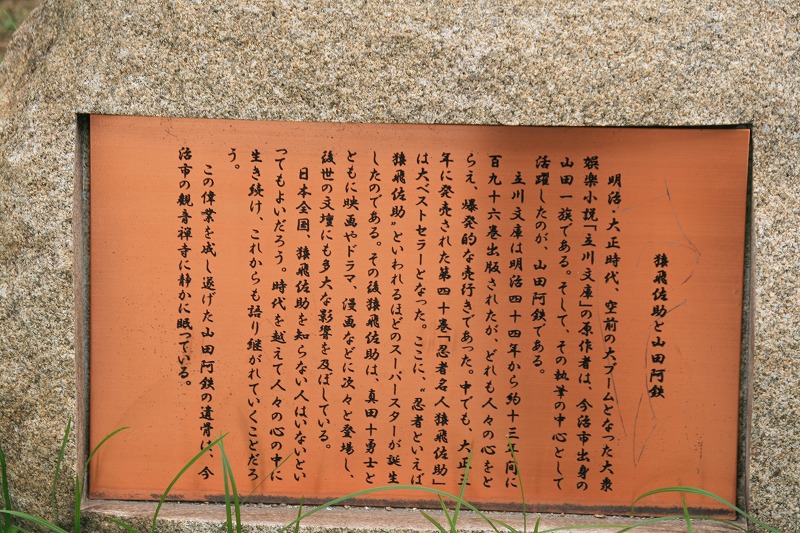 猿飛佐助と山田阿鉄
明治・大正時代、空前の大ブームとなった大衆
娯楽小説「立川文庫」の原作者は、今治市出身の
山田一族である。そして、その執筆の中心として
活躍したのが、山田阿鉄である。
立川文庫は明治四十四年から約十三年間に
百九十六巻出版されたが、どれも人々の心をと
らえ、爆発的な売行きであった。中でも、大正三
年に発売された第四十巻「忍者名人猿飛佐助」
は大ベストセラーとなった。ここに、“忍者といえば
猿飛佐助”といわれるほどのスーパースターが誕生
したのである。その後猿飛佐助は、真田十勇士と
ともに映画やドラマ、漫画などに次々と登場し、
後世の文壇にも多大な影響を及ぼしている。
日本全国、猿飛佐助を知らない人はいないとい
ってもよいだろう。時代を越えて人々の心の中に
生き続け、これからも語り継がれていくことだろ
う。
この偉業を成し遂げた山田阿鉄の遺骨は、今
治市の観音禅寺に静かに眠っている。